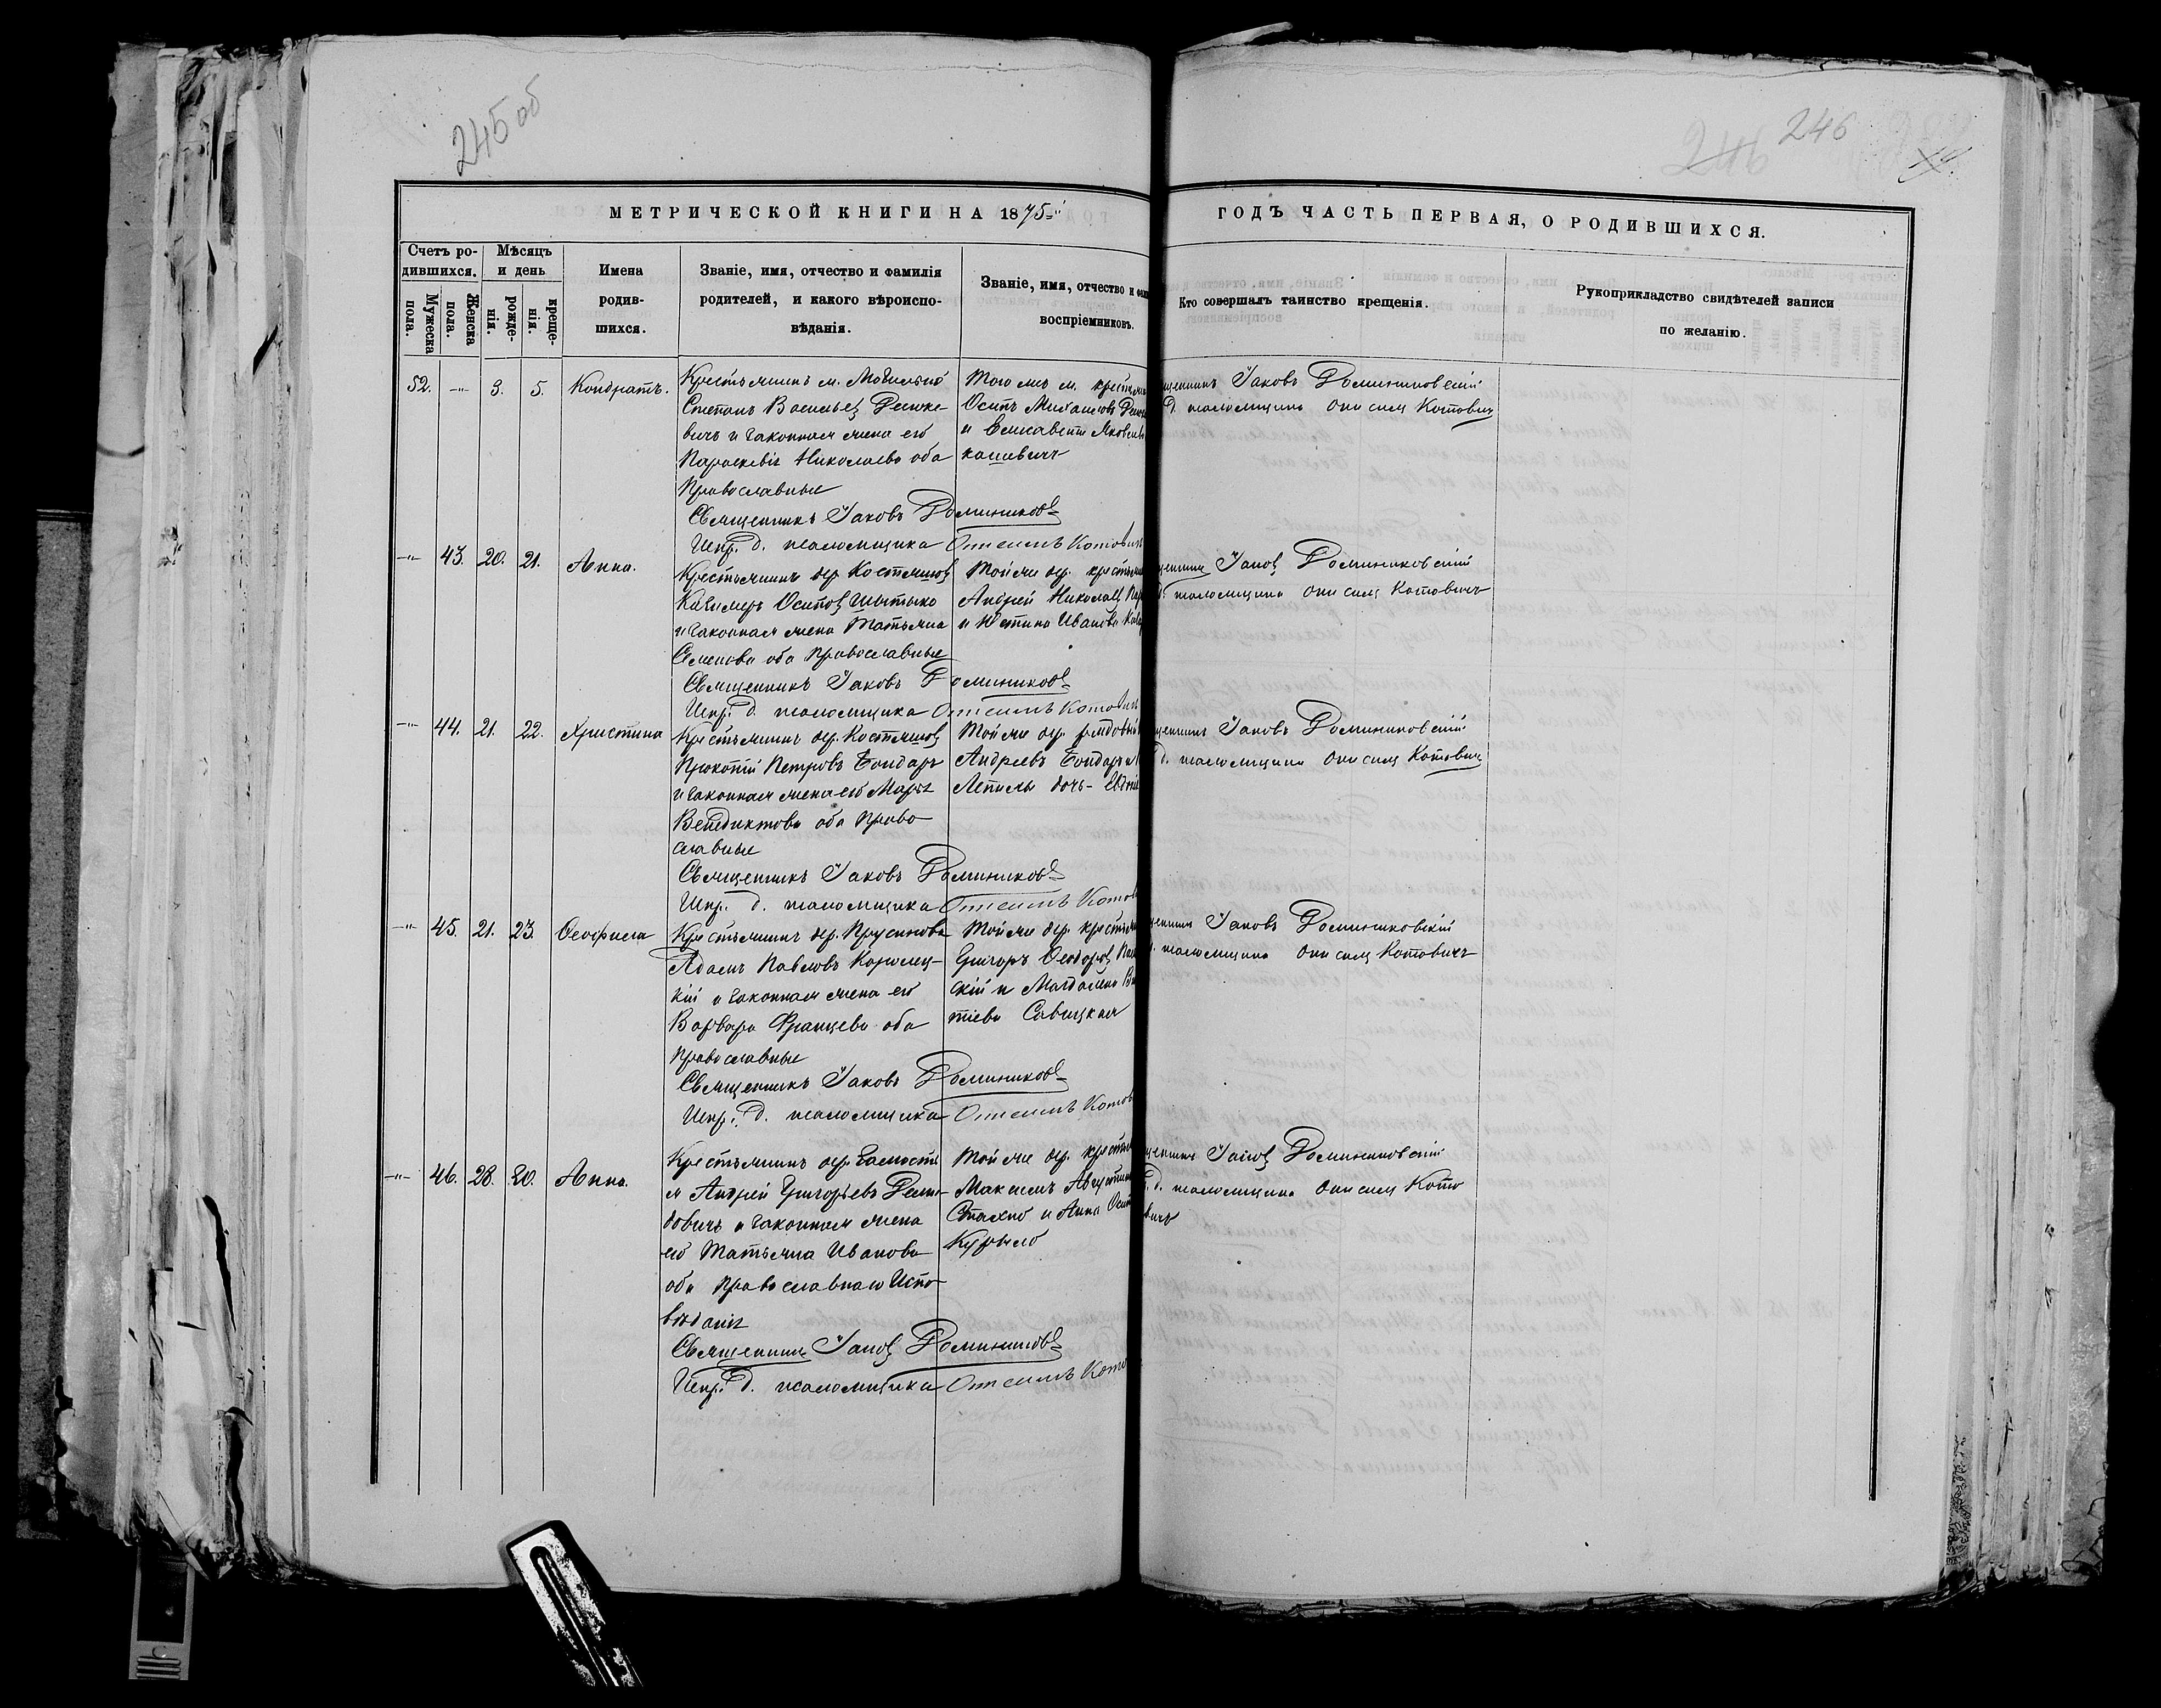 245 об
246
246
МЕТРИЧЕСКОЙ КНИГИ НА 1875
ГОДЪ ЧАСТЬ ПЕРВАЯ, О РОДИВШИХСЯ.
Счетъ ро-
дившихся.
Мужеска
пола.
Женска
пола.
Мѣсяцъ
и день
рожде-
нія.
креще-
нія.
Имена
родив-
шихся.
Званіе, имя, отчество и фамилія
родителей, и какого вѣроиспо-
вѣданія.
Званіе, имя, отчество и
воспріемниковъ.
Кто совершалъ таинство крещенія.
Рукоприкладство свидѣтелей записи
по желанію.
52. 3. 5. Кондратъ.
Крестьянинъ м. Могильно
Степанъ Васильев
вичъ и законная жена его
Параскевія Николаева оба
Православные
Священникъ Іаковъ Доминиковс
Испр. д. псаломщика Онисимъ Котовичъ
Того же м.
Осипъ Михаиловъ
и Елисавета
кашевичъ
Іаковъ Доминиковскій
псаломщика Онисим Котович
43. 20. 21. Анна.
Крестьянинъ дер. Костешов
Казимеръ Осипов Шытыко
и законная жена Татьяна
Семенова оба православные
Священникъ Іаковъ Доминиковс
Испр. д. псаломщика Онисимъ Котовичъ
Той же дер.
Андрей Николаев
и Юстина Иванова
Іаков Доминиковскій
псаломщика Онисим Котовичъ
44. 21. 22. Христина
Крестьянинъ дер. Костешов
Прокопій Петровъ Бондарь
и законная жена его Марія
Венедиктова оба право
славные
Священникъ Іаковъ Доминиковс
Испр. д. псаломщика Онисимъ
Той же дер. рядовый
Андреевъ Бондарь и
дочь
Іаковъ Доминиковскій
д. псаломщика Онисим Котович
45. 21. 23. Ѳеофила
Крестьянинъ дер. Прусинова
Адамъ Павловъ Королец-
кій и законная жена его
Варвара Францева оба
православные
Священникъ Іаковъ Доминиковс
Испр. д. псаломщика Онисимъ
Той же дер.
Григоръ Ѳеодоров
скій и Магдалена
тіева Савицкая
Іаковъ Доминиковскій
псаломщика Онисим Котовичъ
46. 28. 30. Анна.
Крестьянинъ дер. Замость
я Андрей Григорьевъ
довичъ и законная жена
его Татьяна Иванова
оба православнаго Испо-
вѣданія
Священникъ Іаков Доминиковс
Испр. д. псаломщика Онисимъ
Той же дер.
Максимъ
Стахно и Анна
Курыло
Іаков Доминиковскій
д. псаломщика Онисим Кото
вичъ